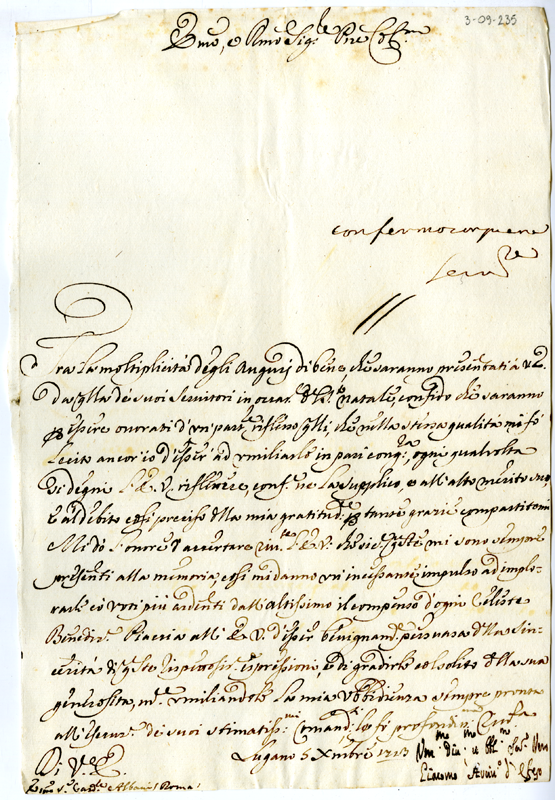 3-09-235
Emo, e Rmo Sig.re Pne Col.mo
confermo
Tra la moltiplicità degli Augurj di bene che saranno presentati à V.E.
da quella de suoi Servitori in occa.e del S. natale, confido che saranno
per essere onorati d'un par. riflesso quelli, che nella stessa qualità mi fò
lecito ancor'io d'esser ad umiliarle in pari cong.ra, ogni qualvolta
si degni l'E. V. riflettere, conf.e ne la supplico, e all'alto merito suo
e al debito così preciso della mia gratitud.e per tante grazie compartitemi
Mi dò l'onore d'accertare l'E. V. che sic queste mi sono sempre
presenti alla memoria, così mi danno un'incessante impulso ad implo-
rarle co voti più ardenti dall'Altissimo il compenso d'ogni Celeste
Bened.ne Piaccia all'E. V. d'esser benignam.e persuasa della sin-
cerità di queste espressioni, e di gradirle col solito della sua
generosità, m.e umiliandole la mia ubbidienza sempre pronta
all'esecuz.e de suoi stimatiss.mi Comandi le fò profondiss.
Di V. E.
Lugano 5 Xmbre 1713
Um.mo Div.mo et Obl.mo Ser.
Giacomo
Albani Roma